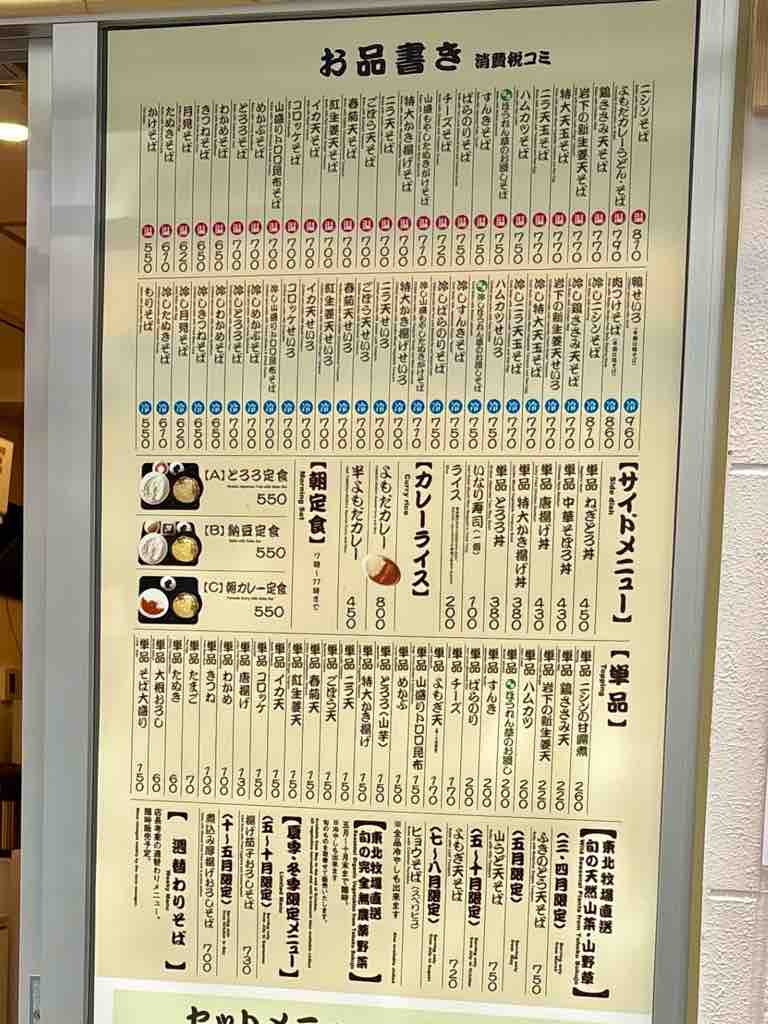 お品書き 消費税コミ
ニシンそば 温 810
よもだカレーうどん・そば 温 790
鶏ささみ天そば 温 770
岩下の新生姜天そば 温 770
特大天玉そば 温 770
ニラ天玉そば 温 770
ハムカツそば 温 750
ほうれん草のお浸しそば 温 750
すんきそば 温 750
ばらのりそば 温 750
チーズそば 温 720
山盛もやしたぬきがけそば 温 710
特大かき揚げそば 温 700
ニラ天そば 温 700
ごぼう天そば 温 700
春菊天そば 温 700
紅生姜天そば 温 700
イカ天そば 温 700
コロッケそば 温 700
山盛りトロロ昆布そば 温 700
めかぶそば 温 700
とろろそば 温 700
わかめそば 温 650
きつねそば 温 650
月見そば 温 620
たぬきそば 温 610
かけそば 温 550
鴨せいろ 冷 960
肉つけそば 冷 860
冷しニシンそば 冷 810
冷し鶏ささみ天そば 冷 770
岩下の新生姜天せいろ 冷 770
冷し特大天玉そば 冷 770
冷しニラ天玉そば 冷 770
ハムカツせいろ 冷 750
冷しほうれん草のお浸しそば 冷 750
冷しすんきそば 冷 750
冷しばらのりそば 冷 750
冷し山盛もやしたぬきがけそば 冷 710
特大かき揚げせいろ 冷 700
ニラ天せいろ 冷 700
ごぼう天せいろ 冷 700
春菊天せいろ 冷 700
紅生姜天せいろ 冷 700
イカ天せいろ 冷 700
コロッケせいろ 冷 700
冷し山盛りトロロ昆布そば 冷 700
冷しめかぶそば 冷 700
冷しとろろそば 冷 700
冷しわかめそば 冷 650
冷しきつねそば 冷 650
冷し月見そば 冷 620
冷したぬきそば 冷 610
もりそば 冷 550
【サイドメニュー】
Side dish
単品 ねぎとろ丼 450
単品 中華そぼろ丼 430
単品 唐揚げ丼 430
単品 特大かき揚げ丼 380
単品 とろろ丼 380
いなり寿司(一個) 100
ライス 200
【カレーライス】
Curry rice
よもだカレー 800
半よもだカレー 450
【朝定食】
Morning Set
7時〜11時まで
【A】とろろ定食
550
【B】納豆定食
550
【C】朝カレー定食
550
【単品】
Topping
単品 ニシンの甘露煮 260
単品 鶏ささみ天 220
単品 岩下の新生姜天 220
単品 ハムカツ 220
単品 ほうれん草のお浸し 200
単品 すんき 200
単品 ばらのり 200
単品 チーズ 170
単品 よもぎ天 170
単品 山盛りトロロ昆布 150
単品 めかぶ 150
単品 とろろ(山芋) 150
単品 特大かき揚げ 150
単品 ニラ天 150
単品 ごぼう天 150
単品 春菊天 150
単品 紅生姜天 150
単品 イカ天 150
単品 コロッケ 150
単品 唐揚げ 130
単品 わかめ 100
単品 きつね 100
単品 たまご 70
単品 たぬき 60
単品 大根おろし 60
単品 そば大盛り 150
【東北牧場直送
旬の天然山菜・山野草】
Wild Seasonal Plants from Tohoku Bokujo
〈三・四月限定〉
ふきのとう天そば 750
〈五月限定〉
山うど天そば 750
〈五〜十月限定〉
よもぎ天そば 720
〈七〜八月限定〉
ヒョウそば(スベリヒユ)
※全品冷やしも出来ます
【東北牧場直送
旬の完全無農薬野菜】
五月〜十月末まで随時、
旬のものを天ぷらそばで販売いたします。
※冷やしも出来ます
【夏季・冬季限定メニュー】
Limited Menu
〈五〜十月限定〉
揚げ茄子おろしそば 730
〈十〜五月限定〉
煮込み厚揚げおろしそば 700
【週替わりそば】
Weekly Menu
店長考案の週替わりメニュー。
随時販売予定。
セットメニュー